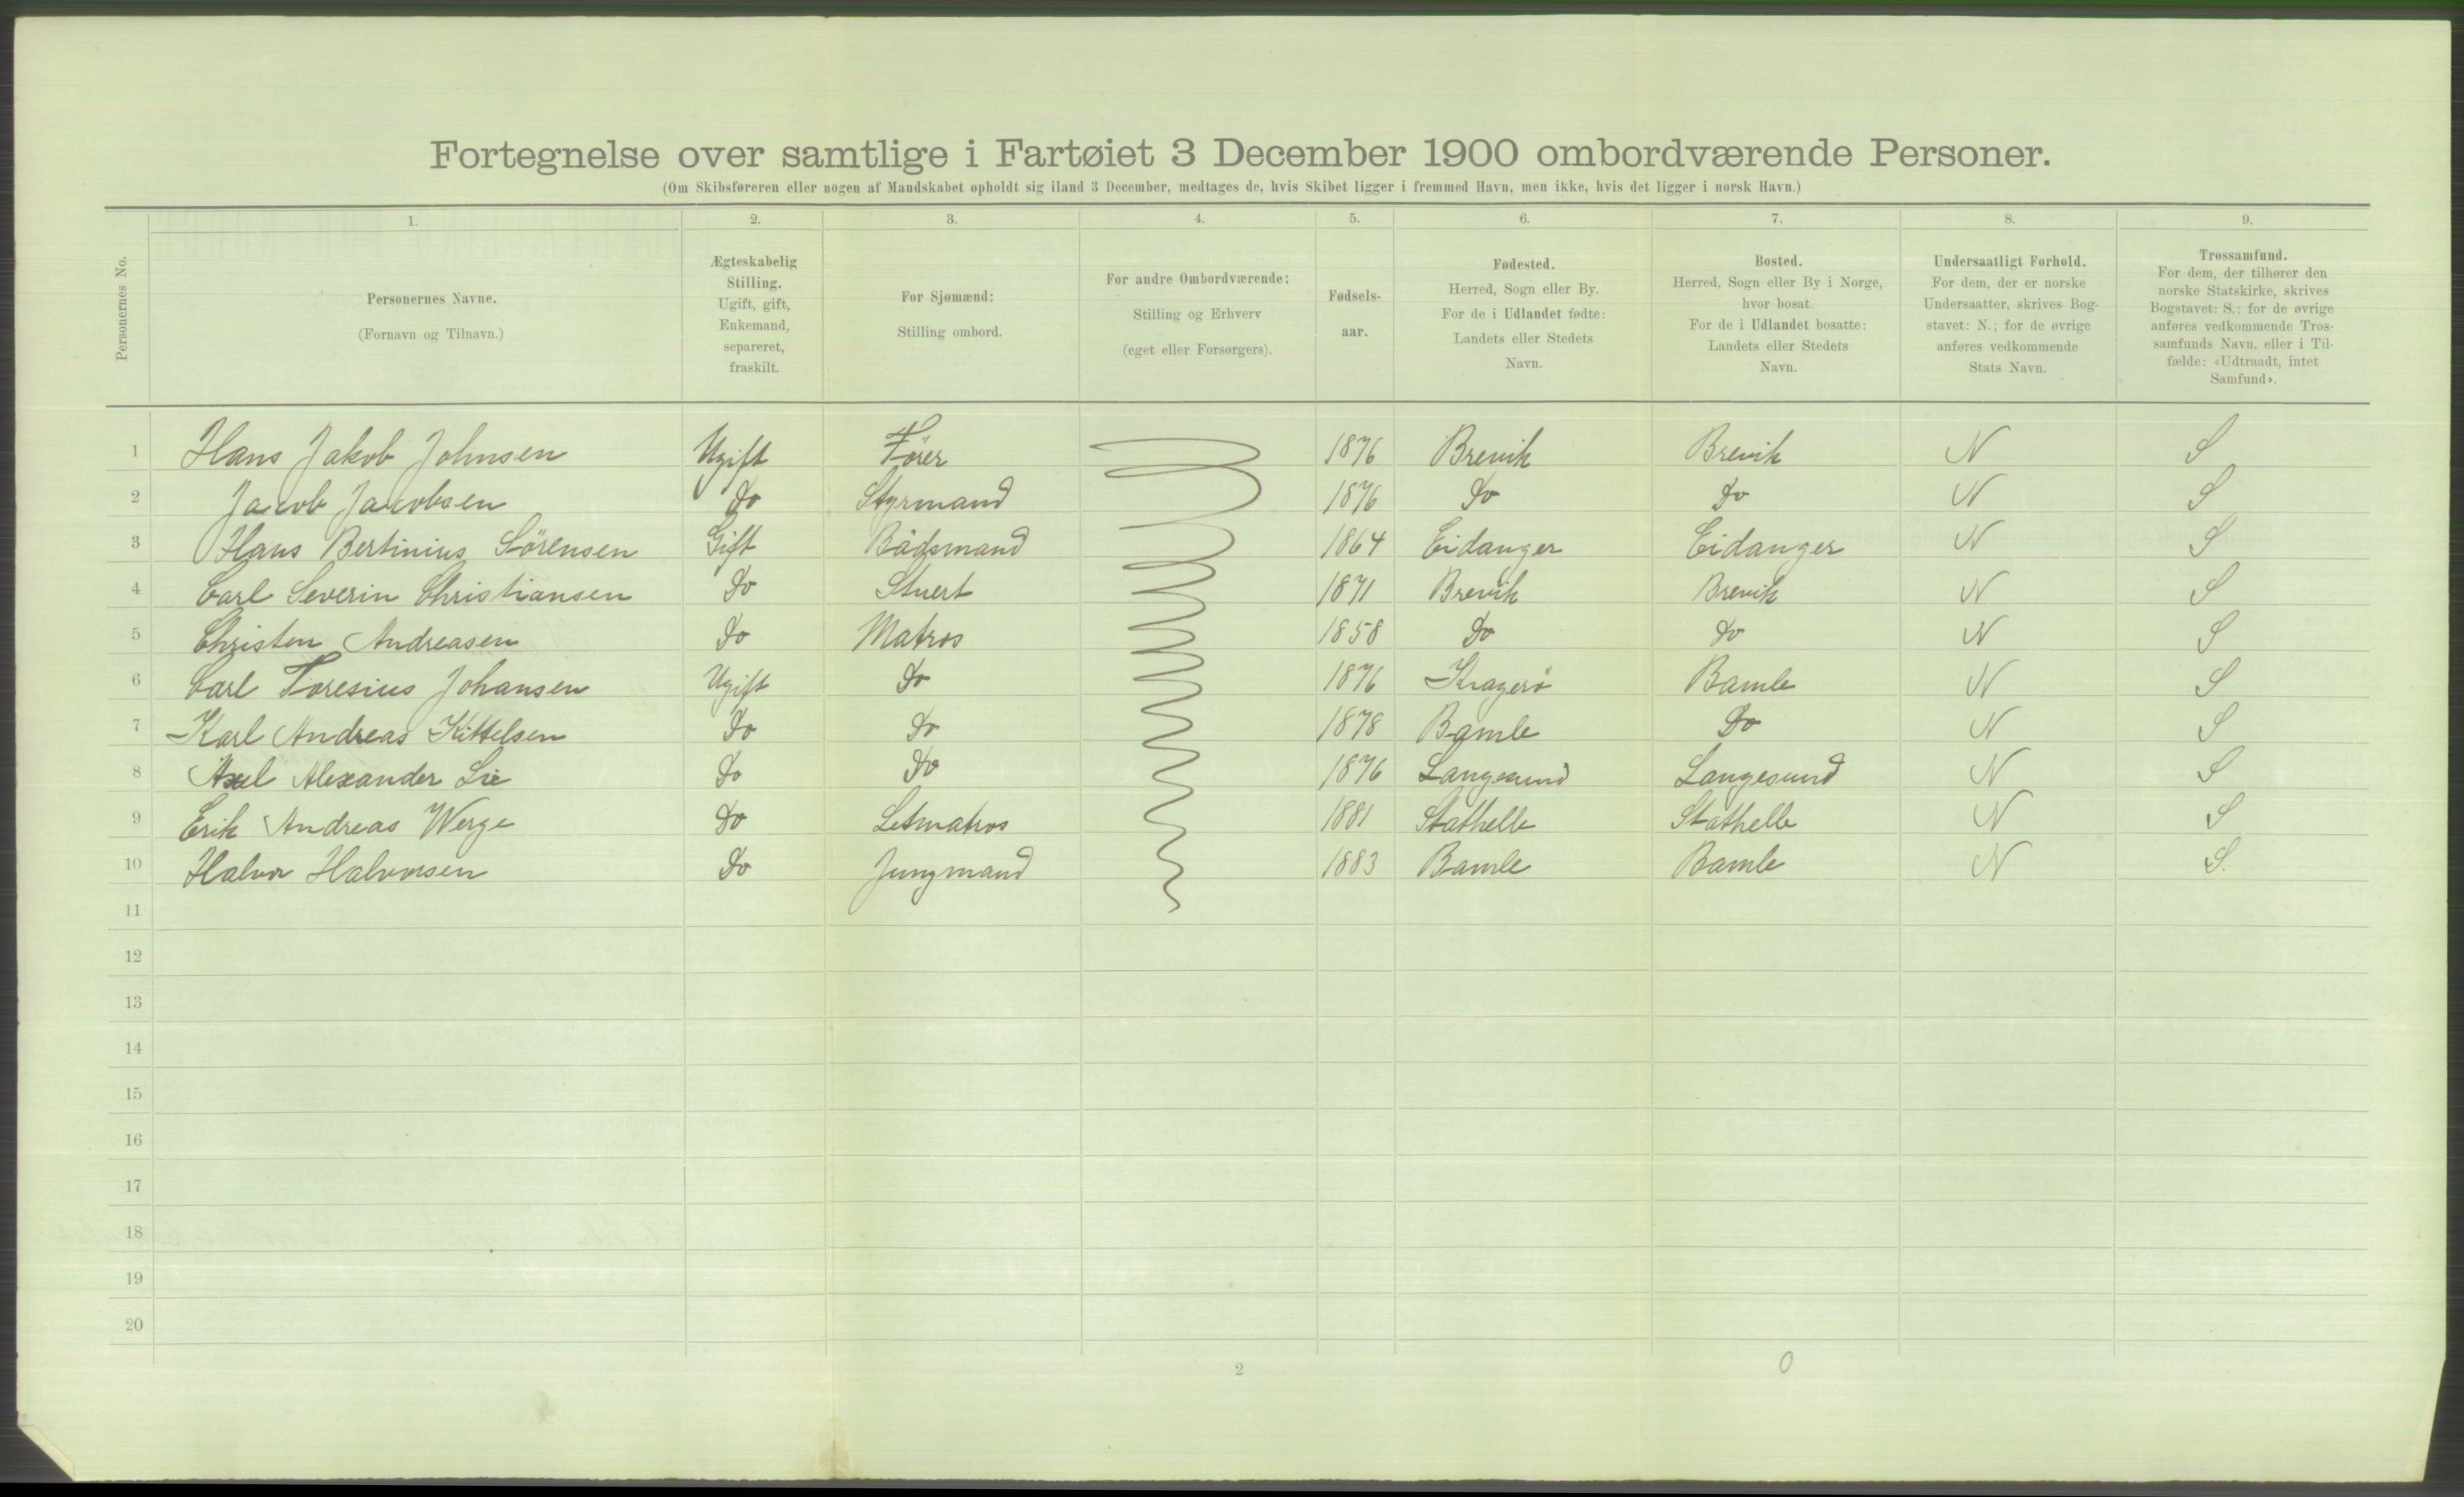 Fortegnelse over samtlige i Fartøiet 3 December 1900 ombordværende Personer.
(Om Skibsføreren eller nogen af Mandskabet opholdt sig iland 3 December, medtages de, hvis Skibet ligger i fremmed Havn, men ikke, hvis det ligger i norsk Havn.)
Personernes No.
1. 2. 3. 4. 5. 6. 7. 8. 9.
Personernes Navne.
(Fornavn og Tilnavn.)
Ægteskabelig
Stilling.
Ugift, gift,
Enkemand,
separeret,
fraskilt.
For Sjømænd:
Stilling ombord.
For andre Ombordværende:
Stilling og Erhverv
(eget eller Forsørgers).
Fødsels-
aar.
Fødested.
Herred, Sogn eller By.
For de i Udlandet fødte:
Landets eller Stedets
Navn.
Bosted.
Herred, Sogn eller By i Norge,
hvor bosat.
For de i Udlandet bosatte:
Landets eller Stedets
Navn.
Undersaatligt Forhold.
For dem, der er norske
Undersaatter, skrives Bog-
stavet: N.; for de øvrige
anføres vedkommende
Stats Navn.
Trossamfund.
For dem, der tilhører den
norske Statskirke, skrives
Bogstavet: S.; for de øvrige
anføres vedkommende Tros-
samfunds Navn, eller i Til-
fælde: «Udtraadt, intet
Samfund».
1 Hans Jakob Johnsen Ugift Fører 1876 Brevik Brevik N S
2 Jacob Jacobsen Do Styrmand 1876 Do Do N S
3 Hans Bertinius Sörensen Gift Bådsmand 1864 Eidanger Eidanger N S
4 Carl Severin Christiansen Do Stuert 1871 Brevik Brevik N S
5 Christen Andreasen Do Matros 1858 Do Do N S
6 Carl Toresius Johansen Ugift Do 1876 Kragerö Bamle N S
7 Karl Andreas Kittelsen Do Do 1878 Bamle Do N S
8 Axel Alexander Lie Do Do 1876 Langesund Langesund N S
9 Erik Andreas Werge Do Letmatros 1881 Stathelle Stathelle N S
10 Halvor Halvorsen Do Jungmand 1883 Bamle Bamle N S.
11
12
13
14
15
16
17
18
19
20
2 0